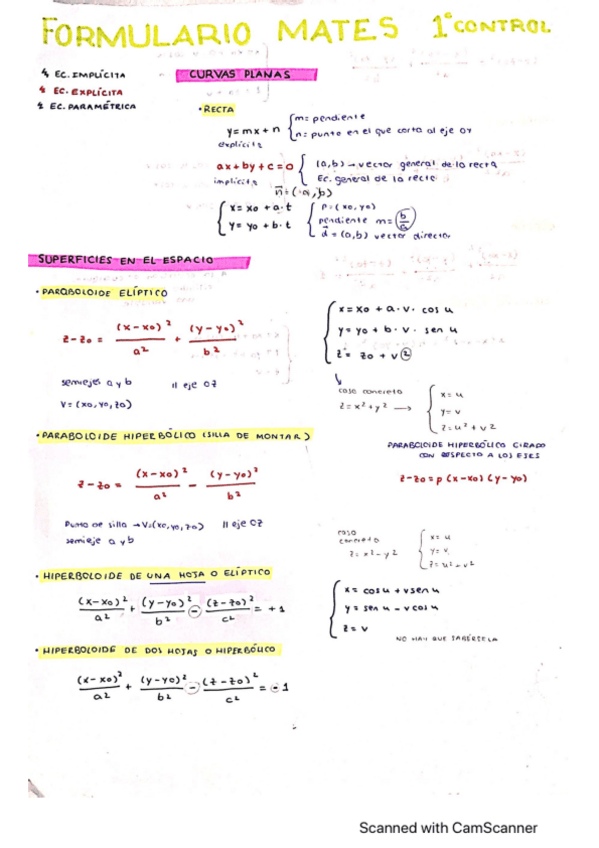 FORMULARIO MATES 1º CONTROL
4 EC. IMPLÍCITA
4 EC. EXPLÍCITA
2 EC. PARAMÉTRICA
CURVAS PLANAS
• RECTA
y = mx + n { m = pendiente
n = punto en el que corta al eje OY
explícita
ax + by + c = 0 { (a,b) → vector general de la recta
Ec. general de la recta
implícita
{ x = x0 + a·t
y = y0 + b·t
{ P = (x0, y0)
pendiente m = b/a
d = (a,b) vector director
SUPERFICIES EN EL ESPACIO
• PARABOLOIDE ELÍPTICO
z - z0 = (x-x0)²/a² + (y-y0)²/b²
semiejes a y b // eje OZ
V = (x0, y0, z0)
{ x = x0 + a·v·cos u
y = y0 + b·v·sen u
z = z0 + v②
caso concreto
z = x² + y² →
{ x = u
y = v
z = u² + v²
• PARABOLOIDE HIPERBÓLICO (SILLA DE MONTAR)
z - z0 = (x-x0)²/a² - (y-y0)²/b²
Punto de silla → V=(x0, y0, z0) // eje OZ
semieje a y b
PARABOLOIDE HIPERBÓLICO GIRADO
CON RESPECTO A LOS EJES
z - z0 = p (x-x0) (y-y0)
caso
concreto
z = x² - y²
{ x = u
y = v
z = u² - v²
• HIPERBOLOIDE DE UNA HOJA O ELÍPTICO
(x-x0)²/a² + (y-y0)²/b² - (z-z0)²/c² = +1
{ x = cos u + v sen u
y = sen u - v cos u
z = v
NO HAY QUE SABÉRSELA
• HIPERBOLOIDE DE DOS HOJAS O HIPERBÓLICO
(x-x0)²/a² + (y-y0)²/b² - (z-z0)²/c² = -1
Scanned with CamScanner